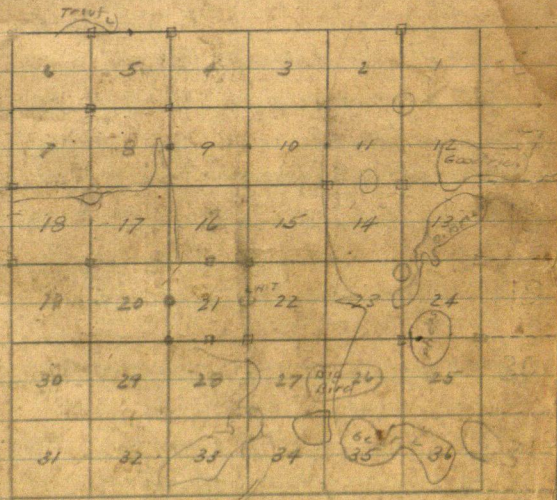 Trout L
6 5 4 3 2 1
7 8 9 10 11 12
18 17 16 15 14 13
19 20 21 22 23 24
30 29 28 27 26 25
Big
Bird
31 32 33 34 35 36